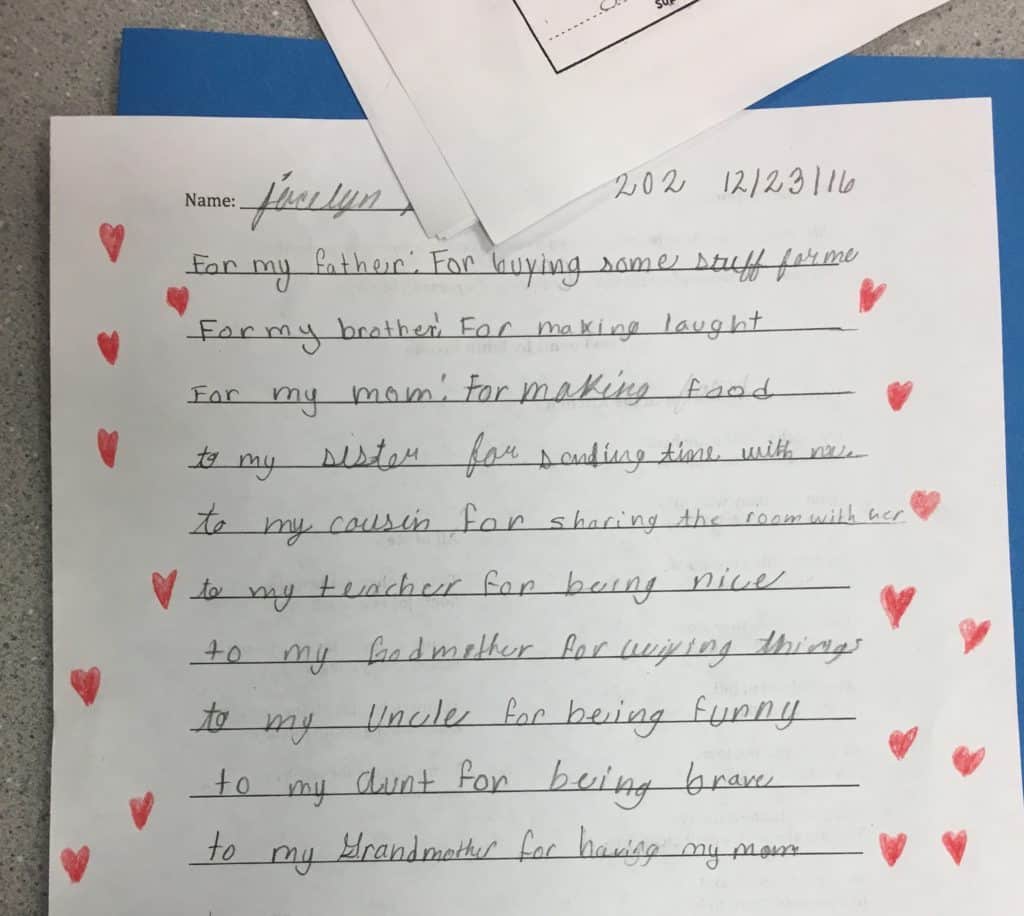 Name: jocelyn 202 12/23/16
For my father: For buying some stuff for me
For my brother: For making laught
For my mom: For making food
to my sister for sending time with me
to my cousin for sharing the room with her
to my teacher for being nice
to my Godmother for things
to my Uncle for being funny
to my aunt for being brave
to my Grandmother for having my mom